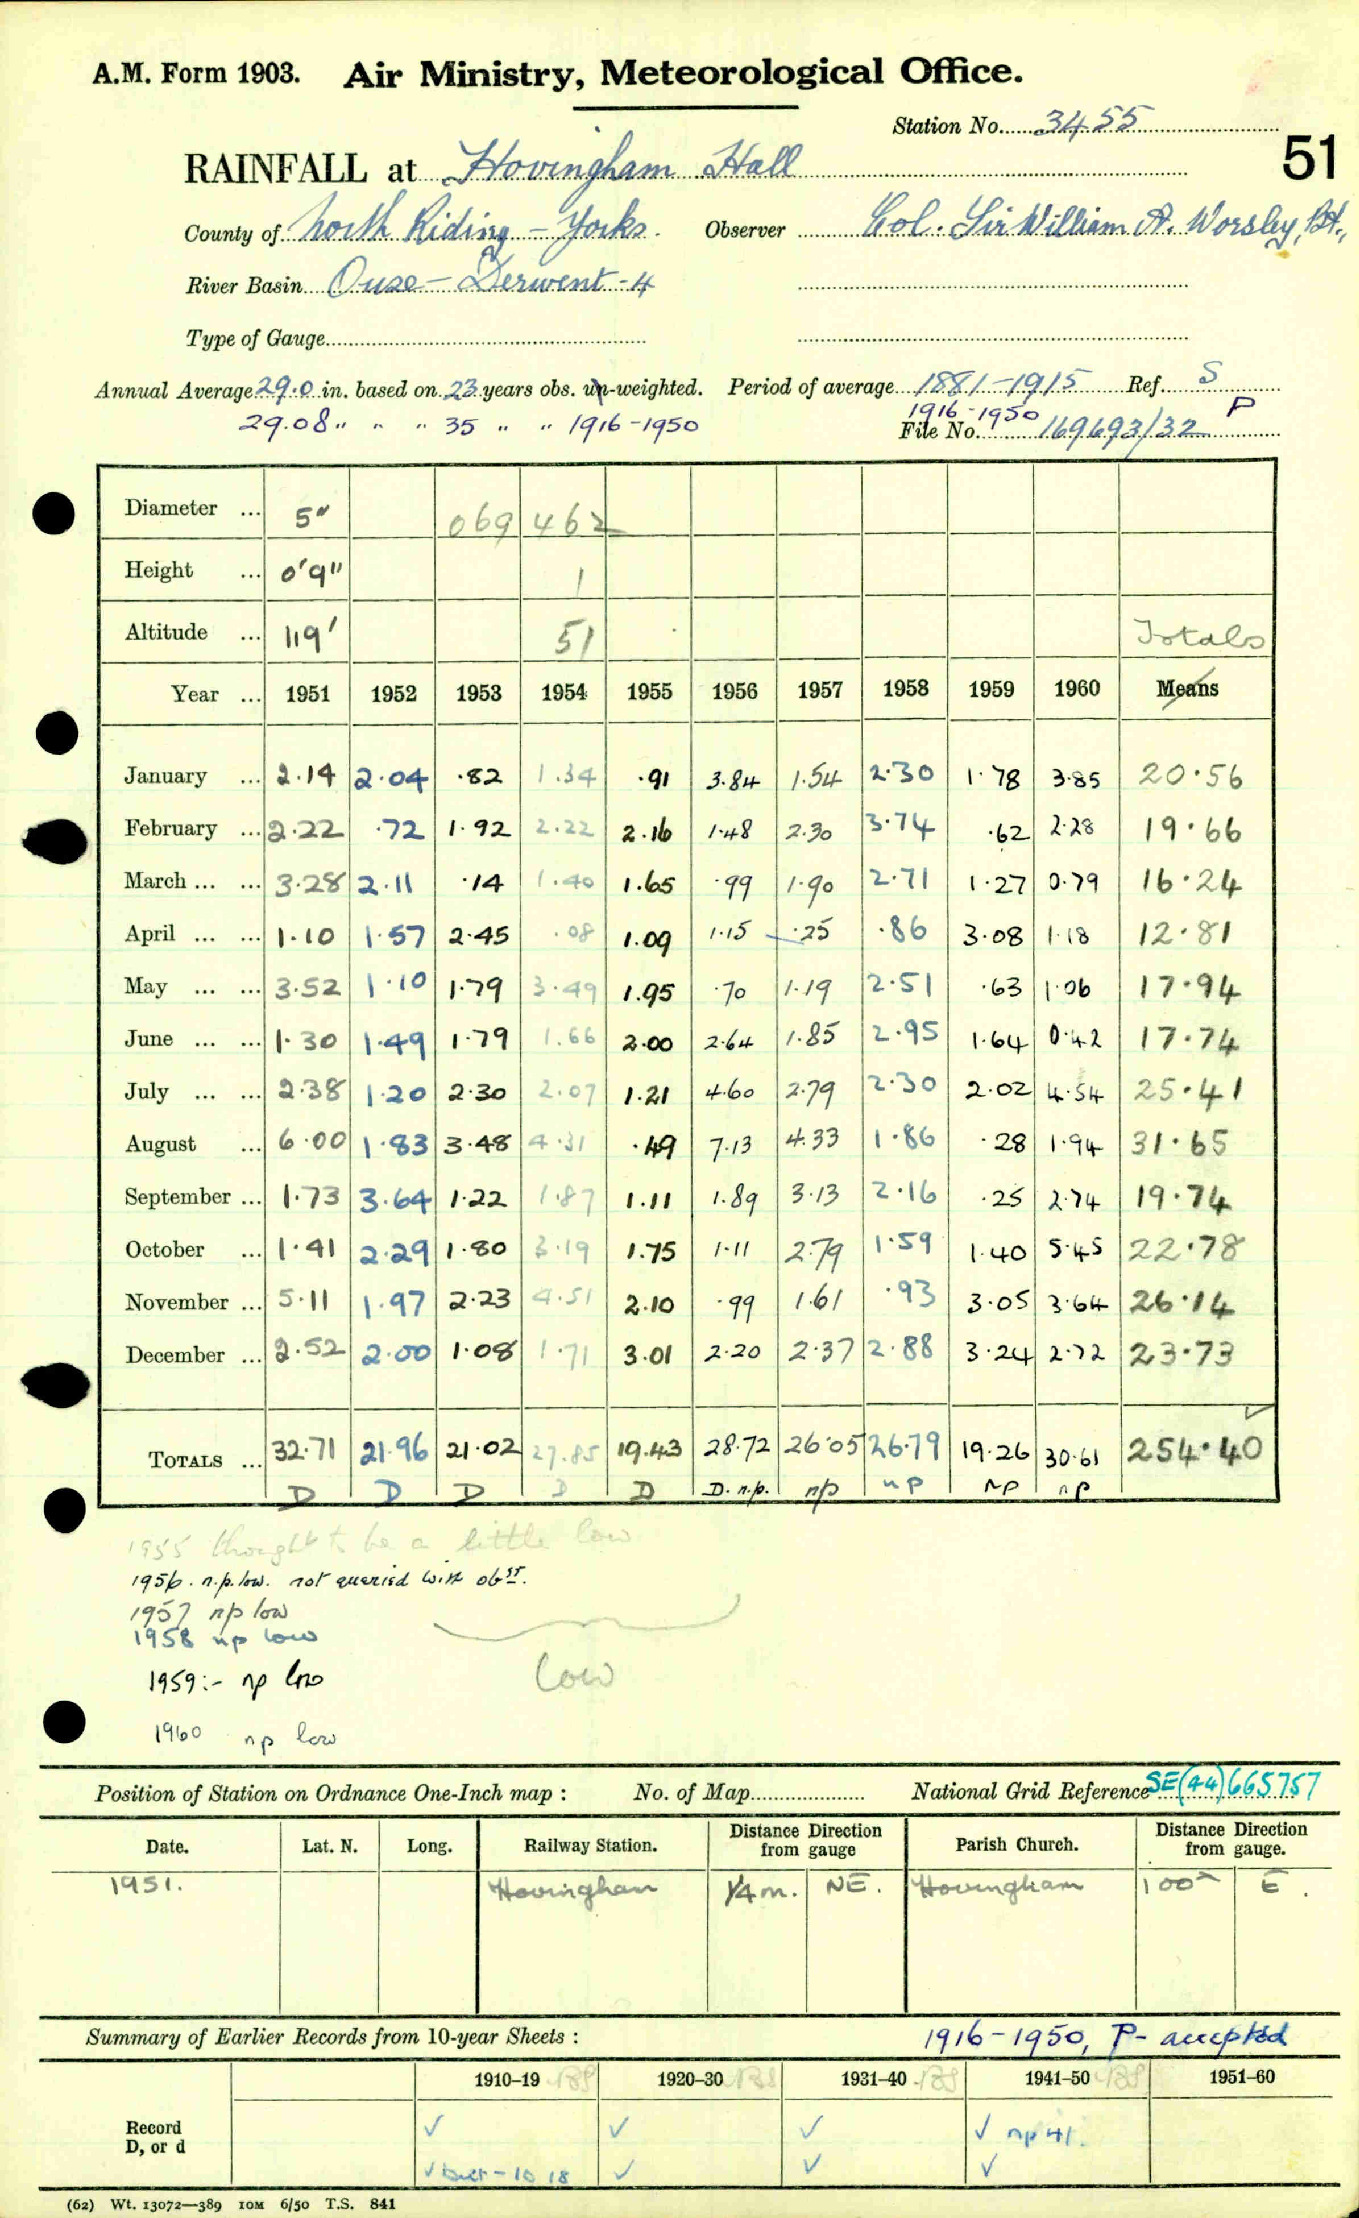 A.M. Form 1903. Air Ministry, Meteorological Office.
Station No. 3455
51
RAINFALL at Hovingham Hall
County of North Riding - Yorks. Observer Col. Sir William A. Worsley, Bt.,
River Basin Ouse - Derwent - 4
Type of Gauge
Annual Average 29.0 in. based on 23 years obs. un-weighted. Period of average 1881-1915 Ref. S
29.08 " " " 35 " " 1916-1950 1916-1950 P
File No. 169693/32
Diameter ... 5" 069 462
Height ... 0'9" 1
Altitude ... 119' 51 Totals
Year ... 1951 1952 1953 1954 1955 1956 1957 1958 1959 1960 Means
January ... 2.14 2.04 .82 1.34 .91 3.84 1.54 2.30 1.78 3.85 20.56
February ... 2.22 .72 1.92 2.22 2.16 1.48 2.30 3.74 .62 2.28 19.66
March ... ... 3.28 2.11 .14 1.40 1.65 .99 1.90 2.71 1.27 0.79 16.24
April ... ... 1.10 1.57 2.45 .08 1.09 1.15 .25 .86 3.08 1.18 12.81
May ... ... 3.52 1.10 1.79 3.49 1.95 .70 1.19 2.51 .63 1.06 17.94
June ... ... 1.30 1.49 1.79 1.66 2.00 2.64 1.85 2.95 1.64 0.42 17.74
July ... ... 2.38 1.20 2.30 2.07 1.21 4.60 2.79 2.30 2.02 4.54 25.41
August ... 6.00 1.83 3.48 4.31 .49 7.13 4.33 1.86 .28 1.94 31.65
September ... 1.73 3.64 1.22 1.87 1.11 1.89 3.13 2.16 .25 2.74 19.74
October ... 1.41 2.29 1.80 3.19 1.75 1.11 2.79 1.59 1.40 5.45 22.78
November ... 5.11 1.97 2.23 4.51 2.10 .99 1.61 .93 3.05 3.64 26.14
December ... 2.52 2.00 1.08 1.71 3.01 2.20 2.37 2.88 3.24 2.72 23.73
TOTALS ... 32.71 21.96 21.02 27.85 19.43 28.72 26.05 26.79 19.26 30.61 254.40
D D D D D D. n.p. np np np np
1955 thought to be a little low
1956. n.p. low. not queried with obsr.
1957 np low
1958 np low
1959:- np low
Low
1960 np low
Position of Station on Ordnance One-Inch map : No. of Map National Grid Reference SE(44)665757
Date. Lat. N. Long. Railway Station. Distance Direction from gauge Parish Church. Distance Direction from gauge.
1951. Hovingham 1/4 m. NE. Hovingham 100x E.
Summary of Earlier Records from 10-year Sheets : 1916-1950, P- accepted
1910-19 1920-30 1931-40 1941-50 1951-60
Record
D, or d
✓ ✓ ✓ ✓ np 41.
✓ but - 10 18 ✓ ✓ ✓
(62) Wt. 13072—389 10M 6/50 T.S. 841